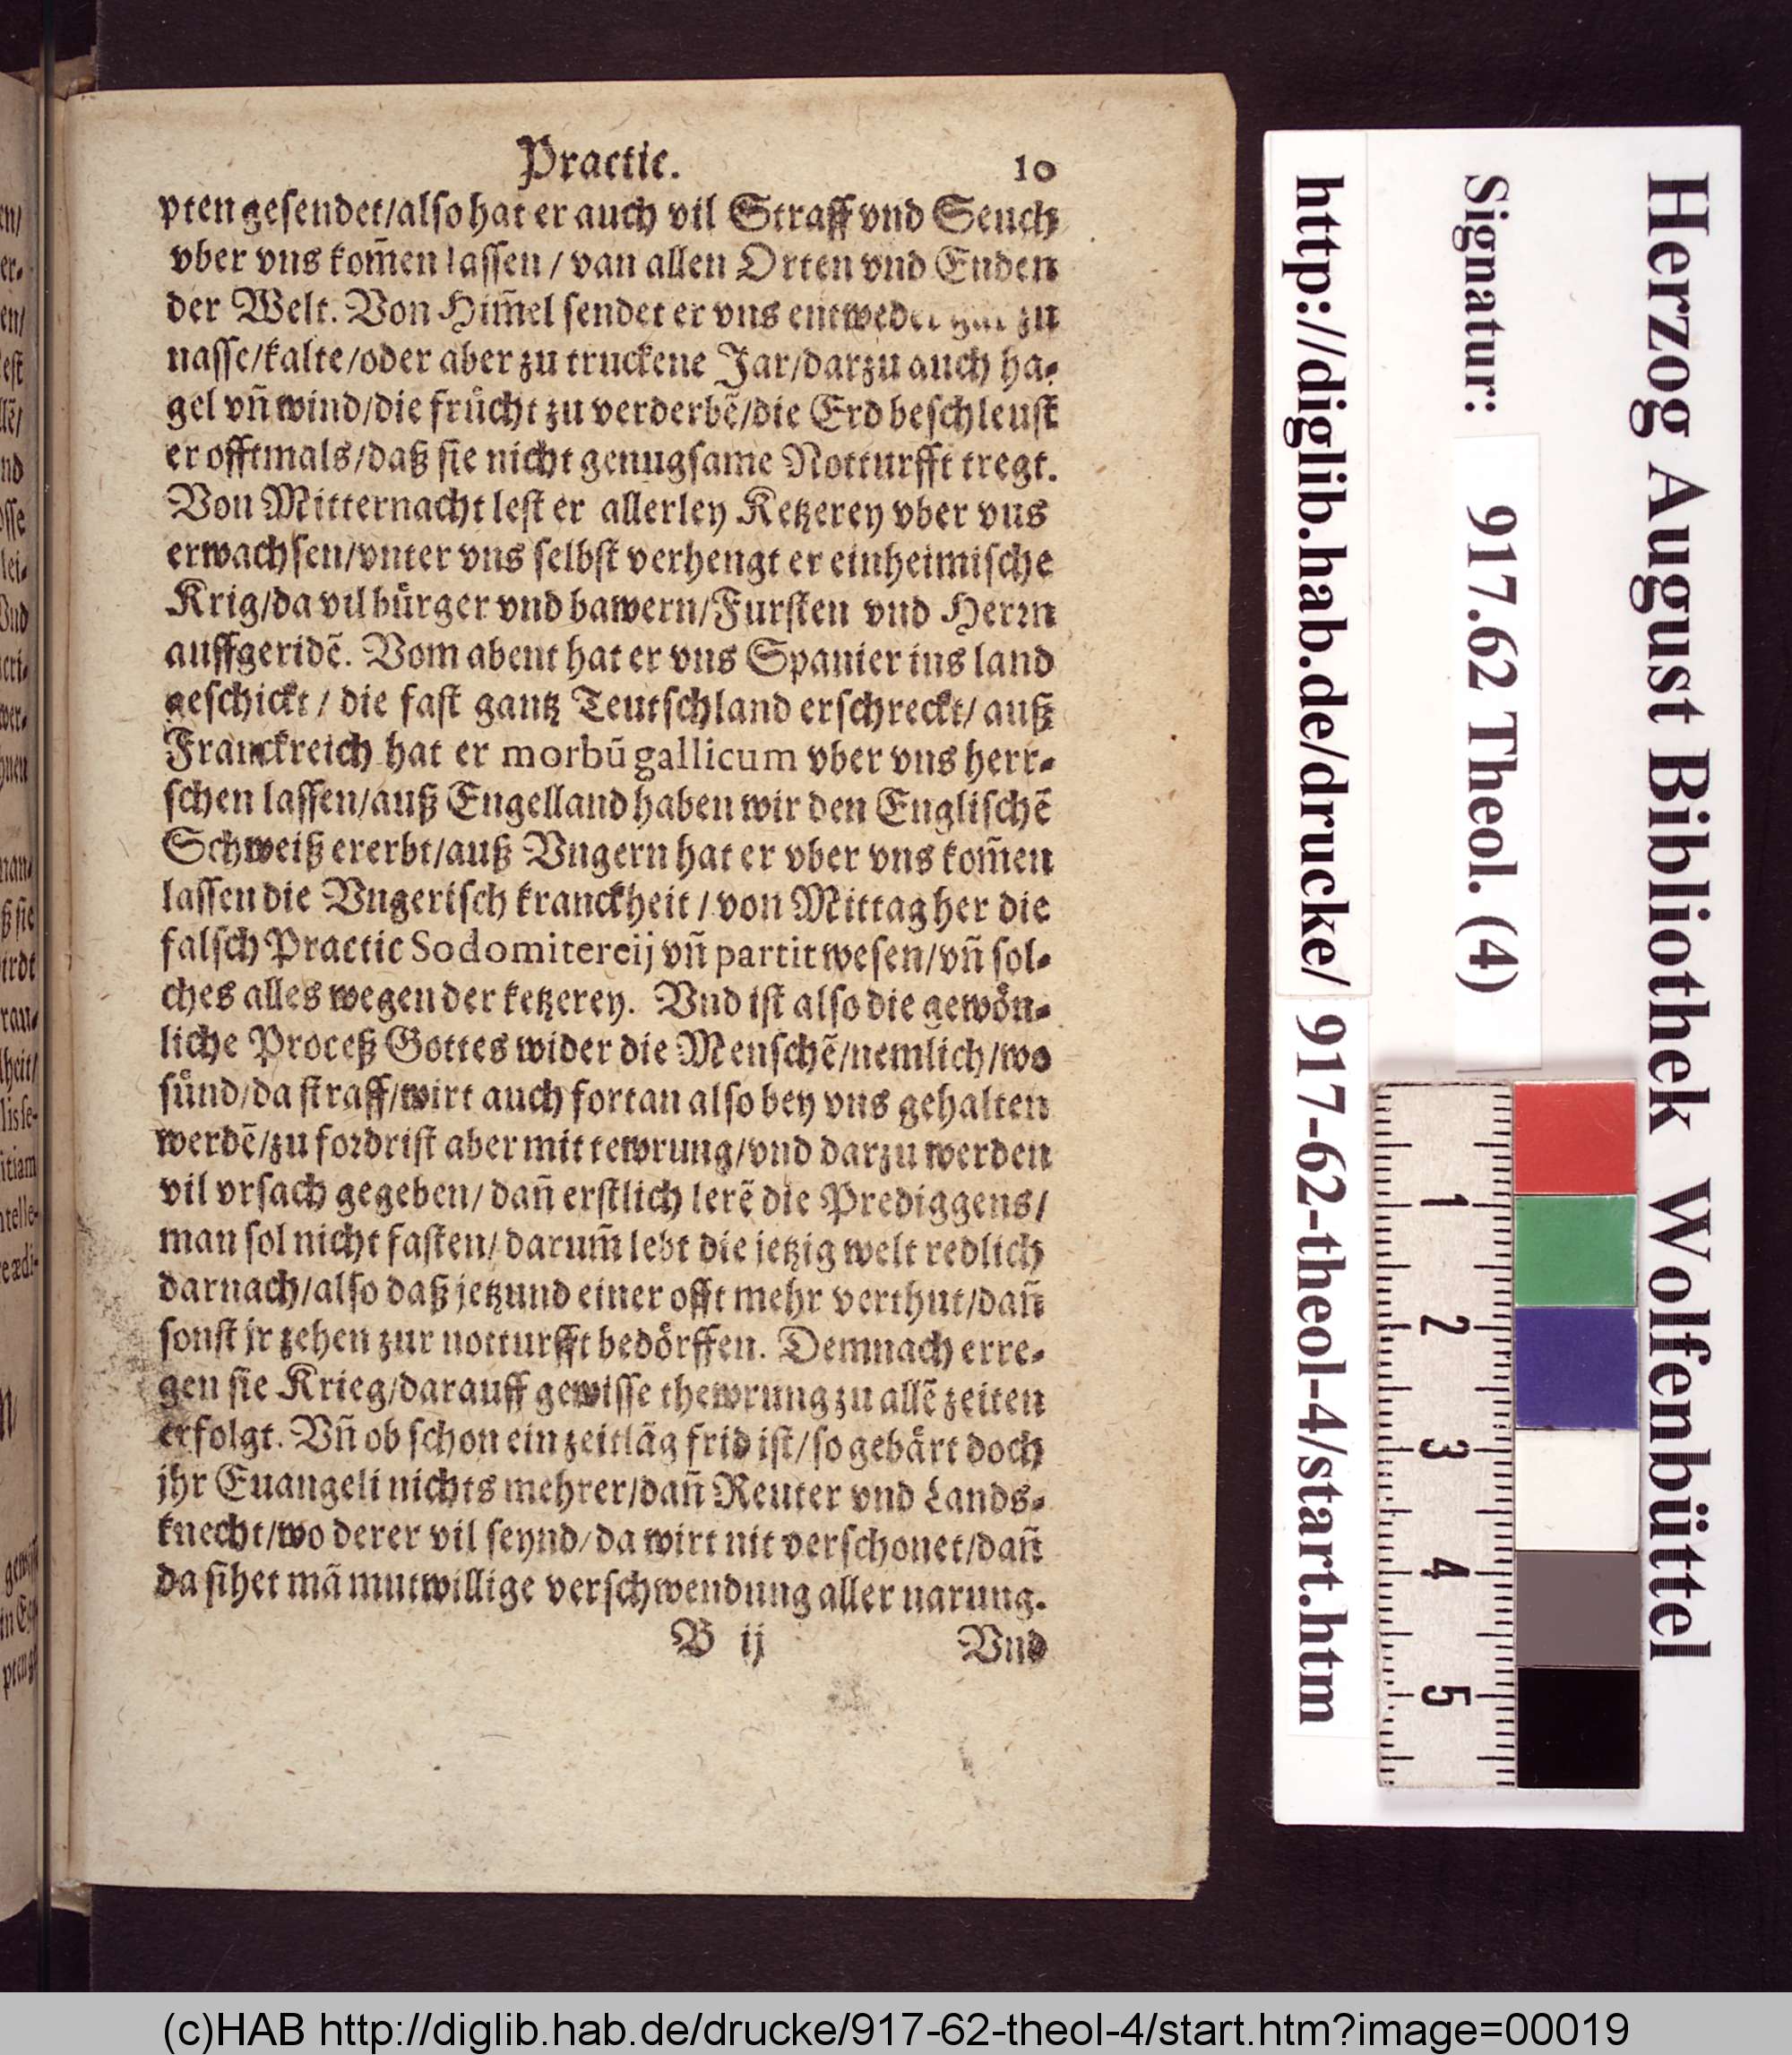 Practic.
10
pten gesendet/also hat er auch vil Straff vnd Seuch
vber vns kom̃en lassen / van allen Orten vnd Enden
der Welt. Von Him̃el sendet er vns entweder gar zu
nasse/kalte/oder aber zu truckene Jar/darzu auch ha⸗
gel vñ wind/die frücht zu verderbẽ/die Erd beschleust
er offtmals/daß sie nicht genugsame Notturfft tregt.
Von Mitternacht lest er allerley Ketzerey vber vns
erwachsen/vnter vns selbst verhengt er einheimische
Krig/da vil bürger vnd bawern/Fursten vnd Herrn
auffgeridẽ. Vom abent hat er vns Spanier ins land
geschickt / die fast gantz Teutschland erschreckt/ auß
Franckreich hat er morbū gallicum vber vns herr⸗
schen lassen/auß Engelland haben wir den Englischẽ
Schweiß ererbt/auß Vngern hat er vber vns kom̃en
lassen die Vngerisch kranckheit / von Mittag her die
falsch Practic Sodomitereij vñ partit wesen/vñ sol⸗
ches alles wegen der ketzerey. Vnd ist also die gewön⸗
liche Proceß Gottes wider die Menschẽ/nemlich/wo
sünd/da straff/wirt auch fortan also bey vns gehalten
werdẽ/zu fordrist aber mit tewrung/vnd darzu werden
vil vrsach gegeben/ dañ erstlich lerẽ die Prediggens/
man sol nicht fasten/ darum̃ lebt die jetzig welt redlich
darnach/also daß jetzund einer offt mehr verthut/dañ
sonst jr zehen zur notturfft bedörffen. Demnach erre⸗
gen sie Krieg/darauff gewisse thewrung zu allẽ zeiten
erfolgt. Vñ ob schon ein zeitlãg frid ist/so gebärt doch
jhr Euangeli nichts mehrer/dañ Reuter vnd Lands⸗
knecht/wo derer vil seynd/da wirt nit verschonet/dañ
da sihet mã mutwillige verschwendung aller narung.
B ij
Vnd
Herzog August Bibliothek Wolfenbüttel
Signatur: 917.62 Theol. (4)
http://diglib.hab.de/drucke/ 917-62-theol-4/start.htm
1
2
3
4
5
(c)HAB http://diglib.hab.de/drucke/917-62-theol-4/start.htm?image=00019